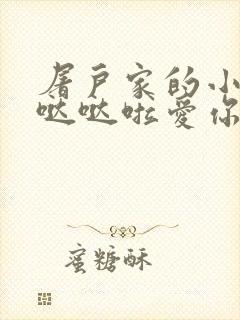 屠户家的小
哒哒啦爱你
蜜糖酥